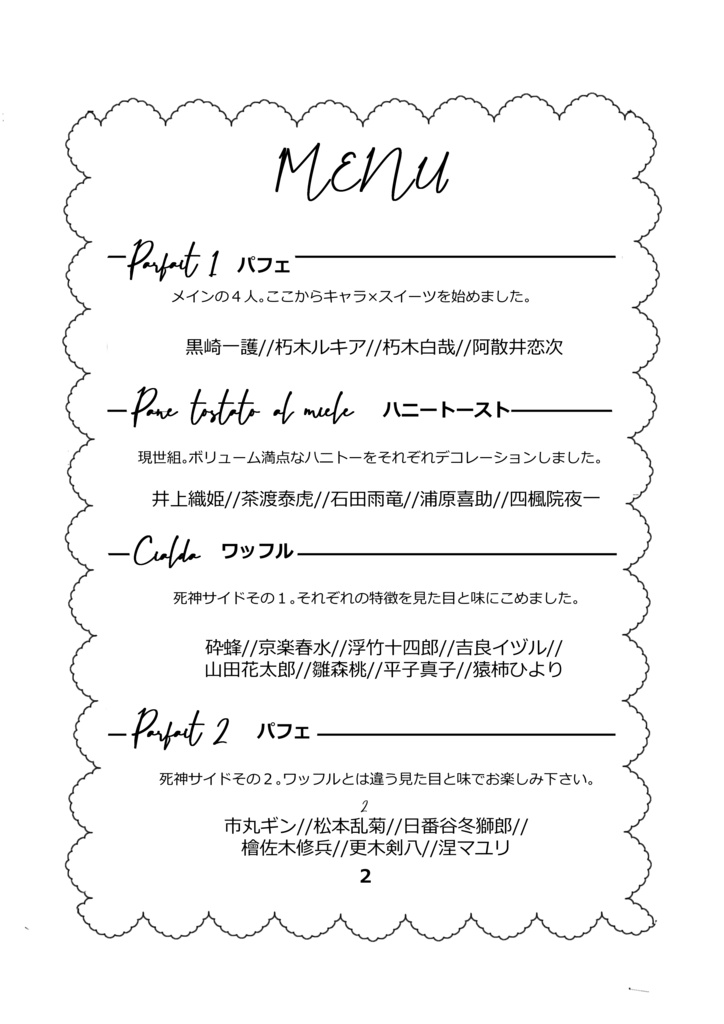 MENU
Parfait 1 パフェ
メインの４人。ここからキャラ×スイーツを始めました。
黒崎一護//朽木ルキア//朽木白哉//阿散井恋次
Pane tostato al miele ハニートースト
現世組。ボリューム満点なハニトーをそれぞれデコレーションしました。
井上織姫//茶渡泰虎//石田雨竜//浦原喜助//四楓院夜一
Cialda ワッフル
死神サイドその１。それぞれの特徴を見た目と味にこめました。
砕蜂//京楽春水//浮竹十四郎//吉良イヅル//
山田花太郎//雛森桃//平子真子//猿柿ひより
Parfait 2 パフェ
死神サイドその２。ワッフルとは違う見た目と味でお楽しみ下さい。
2
市丸ギン//松本乱菊//日番谷冬獅郎//
檜佐木修兵//更木剣八//涅マユリ
2